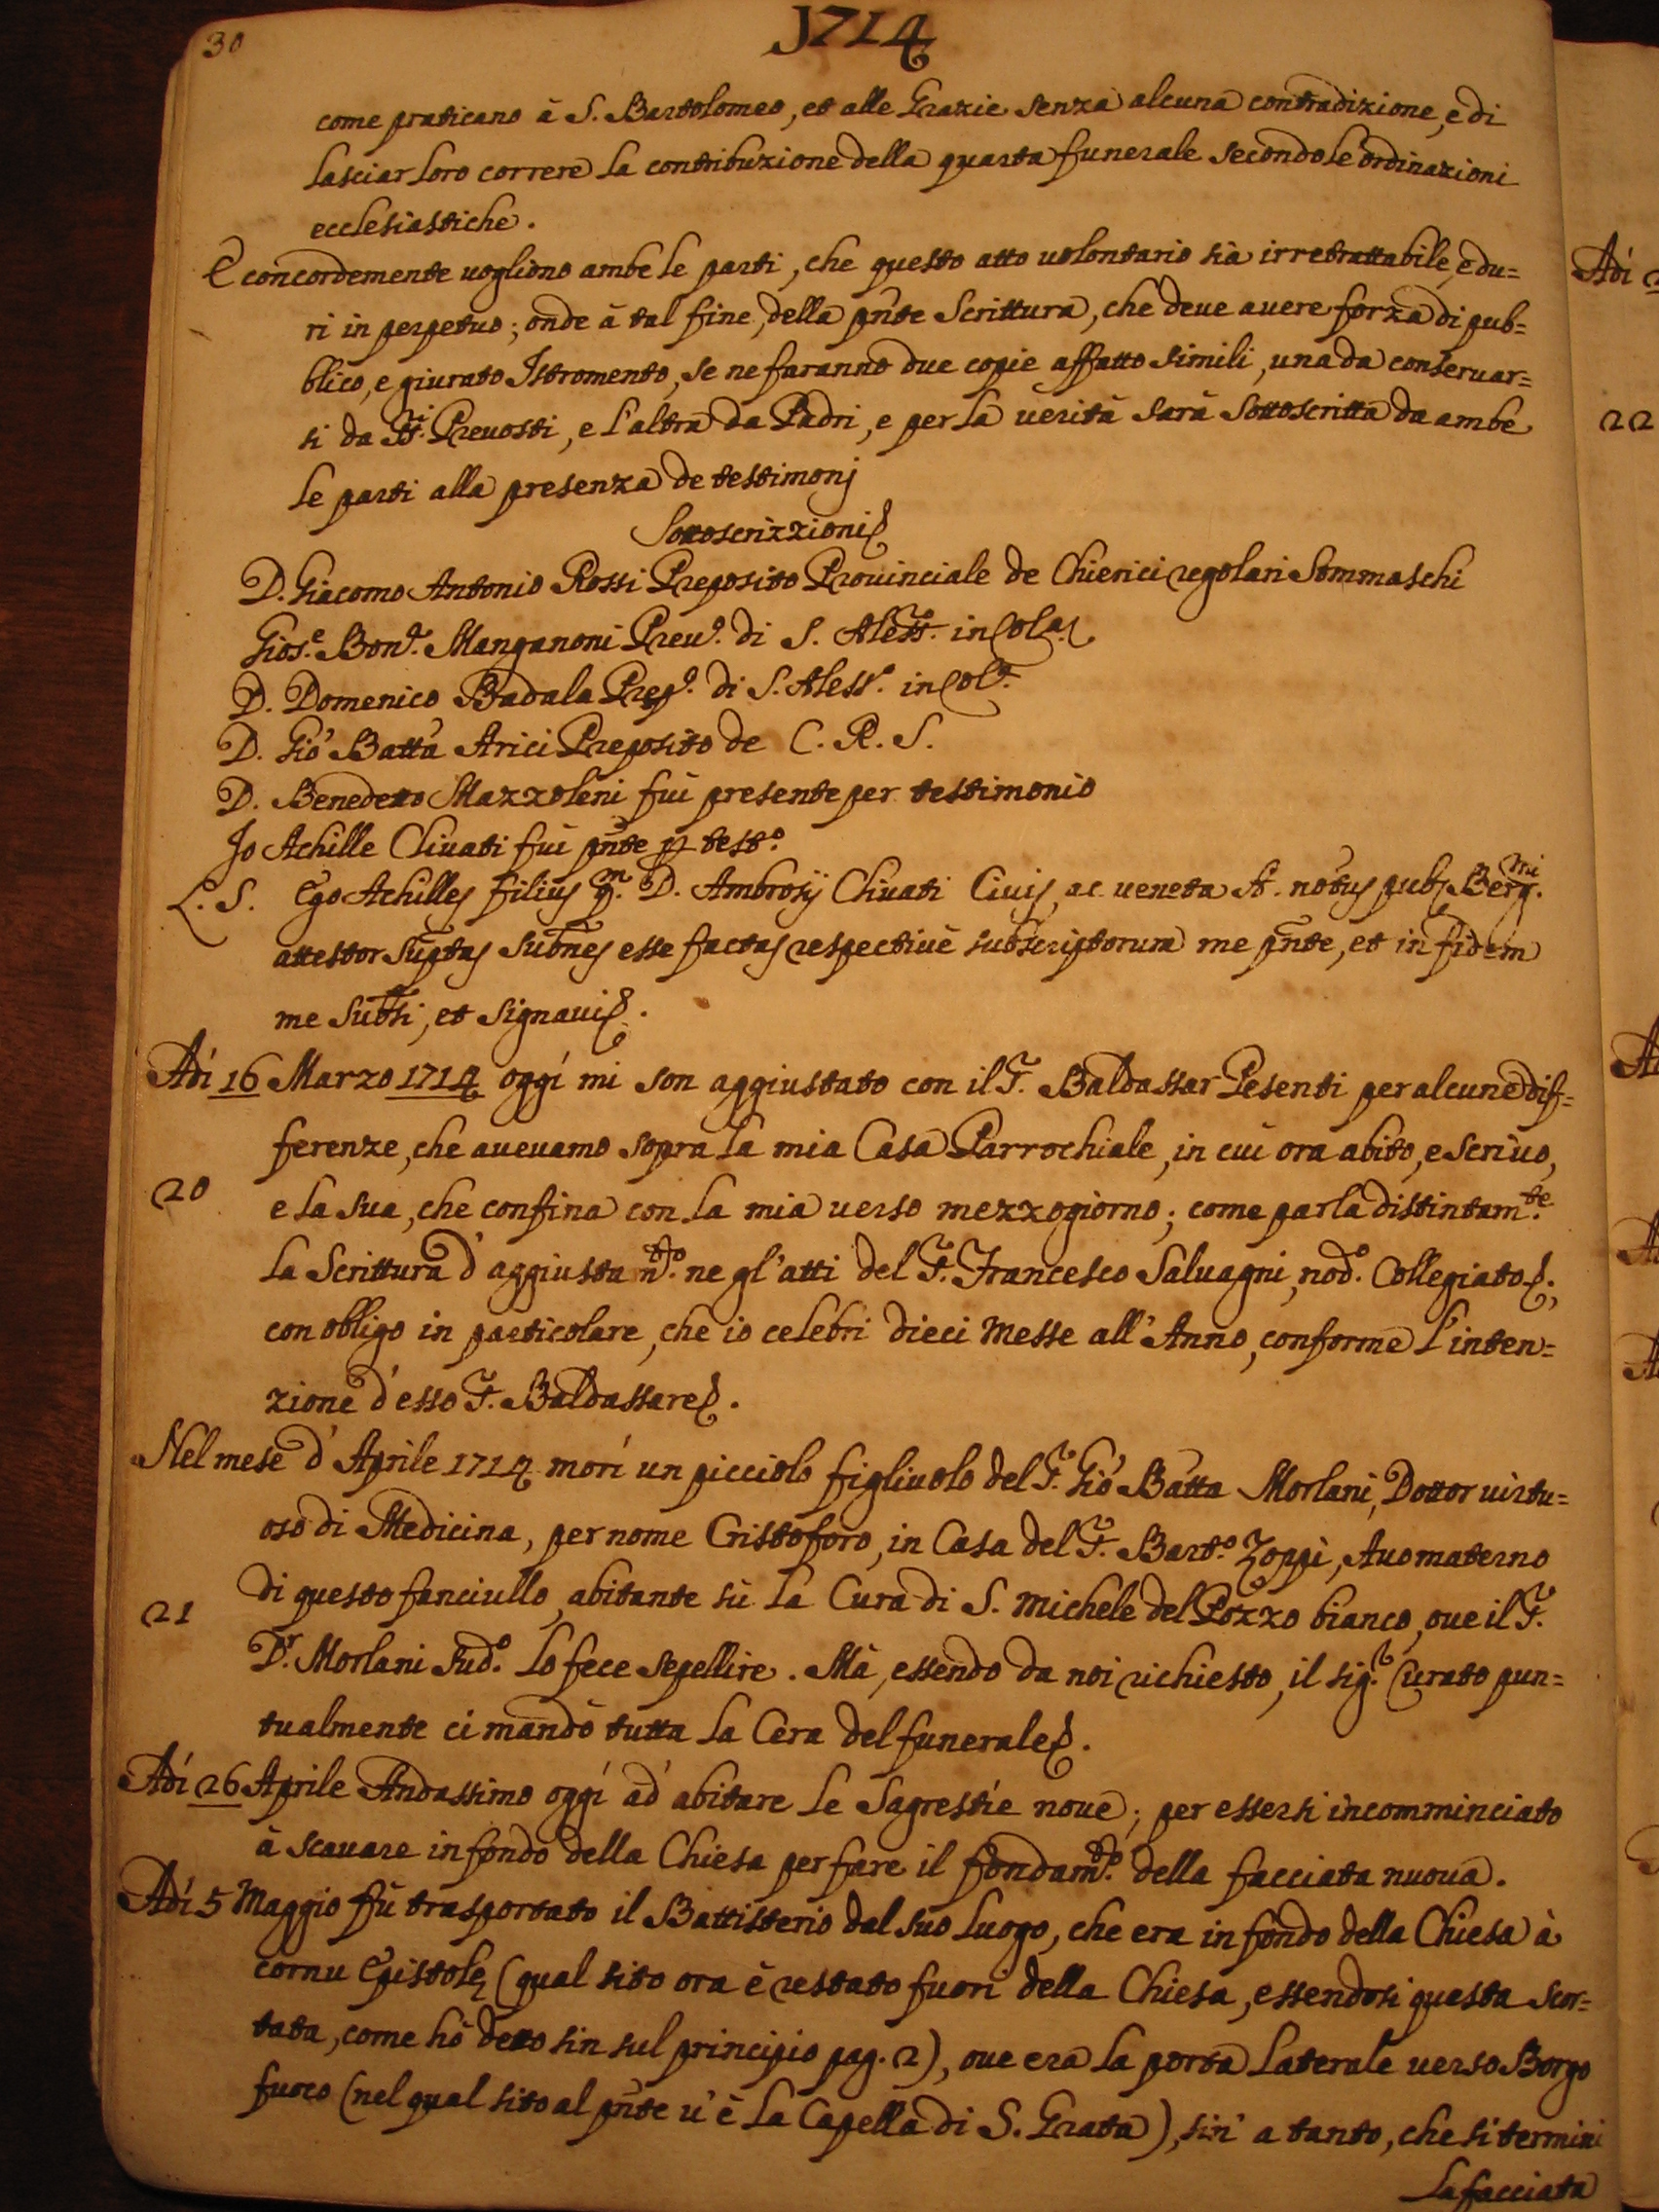 30
1714
come praticano à S. Bartolomeo, et alle Grazie senza alcuna contradizione, e di
lasciar loro correre la contribuzione della quarta funerale secondo le ordinazioni
ecclesiastiche.
E concordemente uogliono ambe le parti, che questo atto uolontario sia irretrattabile, e du=
ri in perpetuo; onde à tal fine, della pñte Scrittura, che deue auere forza di pub=
blico, e giurato Istromento, se ne faranno due copie affatto simili, una da conseruar=
si da SS.ri Preuosti, e l'altra da Padri, e per la uerità sarà sottoscritta da ambe
le parti alla presenza de testimonj
Sottoscrizzioni
D. Giacomo Antonio Rossi Preposito Prouinciale de Chierici regolari Sommaschi
Gios.e Bon.a Manganoni Preu.o di S. Aless.o in Col.a
D. Domenico Badala Prep.o di S. Aless.o in Col.a
D. Giò Batta Arici Preposito de C. R. S.
D. Benedetto Mazzoleni fui presente per testimonio
Jo Achille Chiuati fui pñte p test.o
L. S. Ego Achilles filius q.m D. Ambrosij Chiuati Ciuis, ac ueneta A. notus pub. Berg.mi
attestor suptas subnes esse factas respectiuè subscriptorum me pñte, et in fidem
me subssi, et signaui.
Adì 16 Marzo 1714 oggi mi son aggiustato con il S. Baldassar Pesenti per alcune dif=
ferenze, che aueuamo sopra la mia Casa Parrochiale, in cui ora abito, e scriuo,
20
e la sua, che confina con la mia uerso mezzogiorno; come parla distintam.te
la Scrittura d'aggiustam.to ne gl'atti del S. Francesco Saluagni, nod.o Collegiato;
con obligo in particolare, che io celebri dieci Messe all'Anno, conforme l'inten=
zione d'esso S. Baldassare.
Nel mese d'Aprile 1714 morì un picciolo figliuolo del S. Giò Batta Morlani, Dottor uirtu=
oso di Medicina, per nome Cristoforo, in Casa del S. Bart.o Zoppi, Auo materno
di questo fanciullo, abitante sù la Cura di S. Michele del Pozzo bianco, oue il S.
21
D.r Morlani sud.o lo fece sepellire. Mà, essendo da noi richiesto, il sig.r Curato pun=
tualmente ci mandò tutta la Cera del funerale.
Adì 26 Aprile Andassimo oggi ad abitare le Sagrestie noue; per essersi incomminciato
à scauare in fondo della Chiesa per fare il fondam.to della facciata nuoua.
Adì 5 Maggio fù trasportato il Battisterio dal suo luogo, che era in fondo della Chiesa à
cornu Epistolę (qual sito ora è restato fuori della Chiesa, essendosi questa scor=
tata, come hò detto sin sul principio pag. 2), oue era la porta laterale uerso Borgo
fuoco (nel qual sito al pñte u'è la Capella di S. Grata), sin' a tanto, che si termini
la facciata
Adì
22